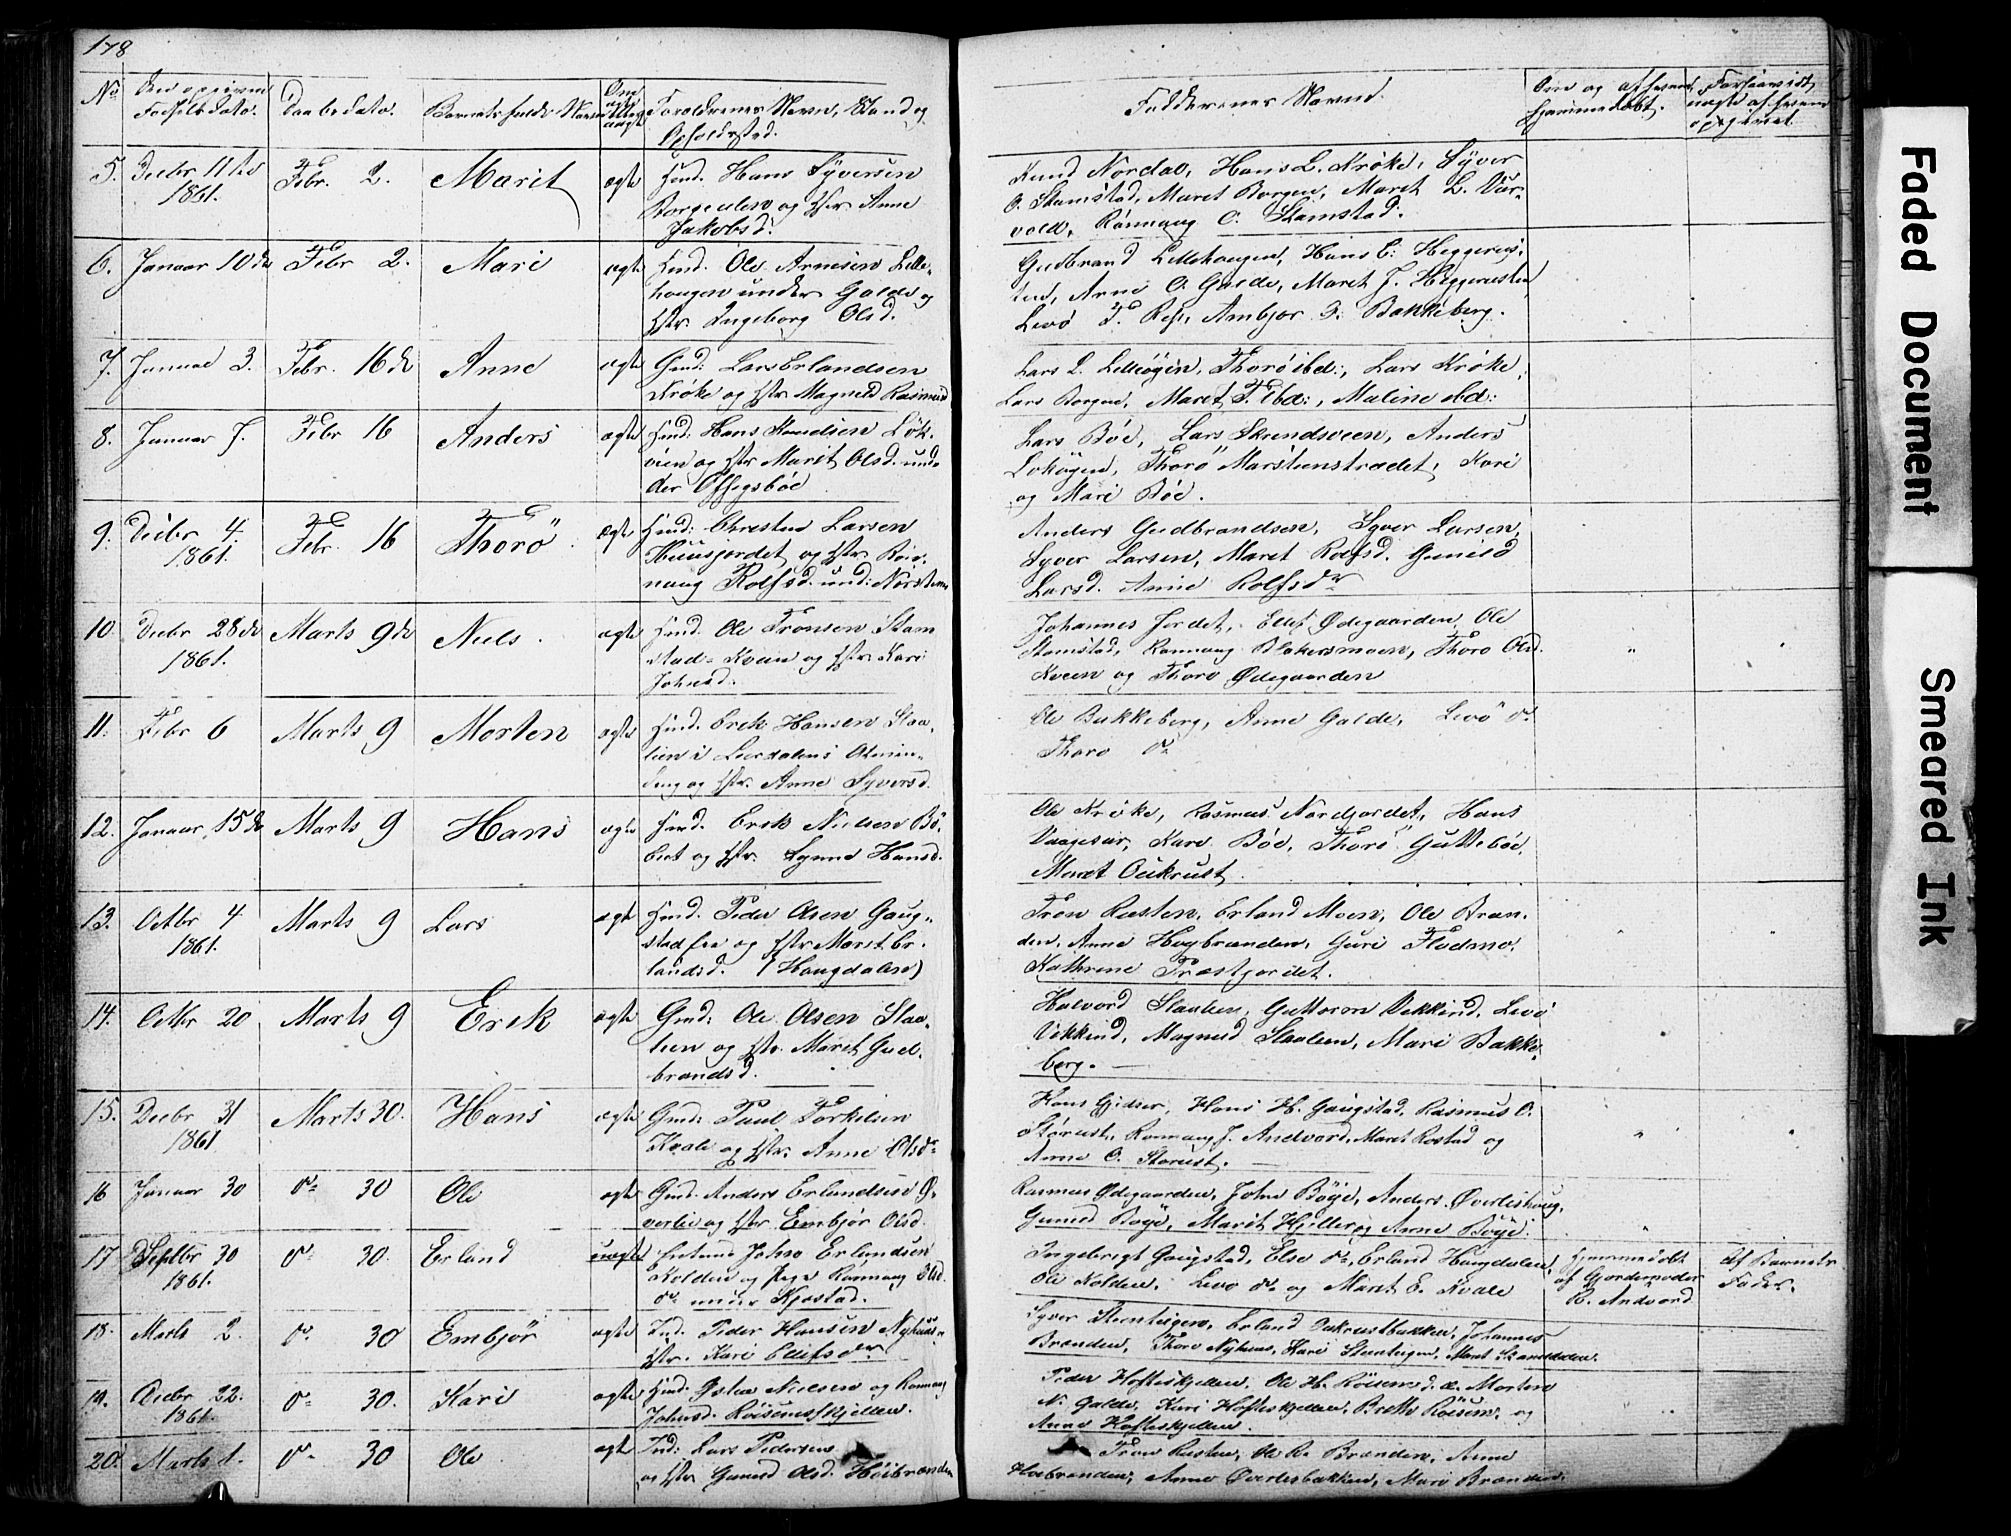 178
No
Den opgivne Fødselsdato.
Daabsdato.
Barnets fulde Navn
Om ægte eller uægte
Forældrenes Navn, Stand og Opholdssted.
Faddernes Navne.
Om og af hvem hjemmedøbt.
af hvem opgivet.
5. Decbr 11te 1861. Febr. 2. Marit ægte Hmd. Hans Syversen
Borgen og Hstr. Anne
Jakobsd.
Knud Nordal, Hans L. Krøke, Syver
O. Stamstad, Maret Borgen, Maret L. Vor-
vold, Rønnaug O. Stamstad.
6. Januar 10de Febr 2. Mari ægte Hmd. Ole Arnesen Lille-
haugen under Galde og
Hstr. Ingeborg Olsd.
Gudbrand Lillehaugen, Hans E. Heggerus-
ten, Arne O. Galde, Maret J. Heggerusten
Levø T. Ref, Ambjor Bakkeberg.
7. Januar 3. Febr. 16de Anne ægte Gmd: Lars Erlandsen
Krøke og Hstr Magnild Rasmusd
Lars L. Lilleøgen, Thorø ibd:, Lars Krøke,
Lars Borgen, Maret T. ibd:, Maline ibd:
8. Januar 7. Febr 16 Anders ægte Hmd: Hans Knudsen Løk-
vien og Hstr Marit Olsd. un-
der Offigsbøe
Lars Bøe, Lars Skrendsveen, Anders
Lokøgen, Thorø Marsteinstrædet, Kari
og Mari Bøe.
9. Decbr 4. 1861. Febr. 16 Thorø ægte Hmd: Christen Larsen
Huusjordet og Hstr Røn-
naug Rolfsd. und: Norsteen
Anders Gudbrandsen, Syver Larsen,
Syver Larsen, Maret Rolfsd. Gunild
Larsd. Anne Rolfsdr
10. Decbr 28de 1861. Marts 9de Niels. ægte Hmd. Ole Tronsen Stam
stad-Kveen og Hstr Kari
Johnsd.
Johannes Jordet, Ellef Ødegaarden, Ole
Stamstad, Rønnaug Blakersmoen, Thorø Olsd.
Kveen og Thorø Ødegaarden
11. Febr 6 Marts 9 Morten ægte Hmd. Erik Hansen Slaa-
lien i Leirdalens Almin-
ding og Hstr. Anne Syversd.
Ole Bakkeberg, Anne Galde, Levø do
Thorø do
12. Januar 15de Marts 9 Hans ægte Hmd. Erik Nielsen Bø-
og Hstr. Synne Hansd.
Ole Krøke, Rasmus Nordjordet, Hans
Vaagesar, Kari Bøe, Thorø Guttebøe,
Maret Oukrust.
13. Octbr 4 1861. Marts 9 Lars ægte Hmd. Peder Olsen Gaug-
stad og Hstr Marit Er-
landsd. (Haugdalen)
Tron Rusten, Erland Moen, Ole Bran-
den, Anne Høybranden, Guri Flodmo,
Kathrine Præstjordet.
14. Octbr 20 Marts 9 Erik ægte Gmd: Ole Olsen Slaa-
lien og Hstr. Maret Gud-
brandsd.
Halvord Slaalien, Guttorm Vekkind, Levø
Vekkind, Magnild Slaalien, Mari Bakke-
berg.
15. Decbr 31 1861 Marts 30. Hans ægte Gmd: Paul Torkilsen
Kvale og Hstr. Anne Olsdr
Hans H. Gaugstad, Rasmus O.
Storust, Rønnaug J. Andvord, Maret Rostad og
Anne O. Storust.
16 Januar 30 do 30 Ole ægte Gmd: Anders Erlandsen Ø-
verlie og Hstr Embjør Olsd.
Rasmus Ødegaarden, John Bøye, Anders Øverlishaug,
Gunild Bøye, Marit Hjelle og Anne Bøye.
17 Septbr 30 1861. do 30. Erland uægte John Erlandsen
Kolden og Pige Rønnaug Olsd.
do under Kjæstad.
Ingebrigt Gaugstad, Else do, Erland Haugdalen,
Ole Kolden, Levø do og Maret E. Kvale
Hjemmedøbt
af Gjordemoder
R. Andvord
Af Barnets
Fader.
18. Marts 2. do 30 Embjør ægte Ind. Peder Hansen Nyhuus-
Hstr. Kari Ellefsdr
Syver Steinteigen, Erland Oukrustbakken, Johannes
Brænden, Thorø Nyhuus, Kari Steinteigen, Maret
19. Decbr 22. 1861. do 30. Kari ægte Hmd: Østen Nielsen og Rønnaug
Johnsd. Røisemshjellen.
Peder Hofteskjellen, Ole H. Røisem, Morten
N. Galde, Kari Hofteskjellen, Brethe Røisem, og
Anne Hofteskjellen.
20. Marts 1. do 30 Ole ægte Ind: Lars Pedersen
og Hstr Gunild Olsd. Høibrænden
Tron Rusten, Ole R. Brænden, Anne
Høibrænden, Anne Øverlisbakken, Mari Brænden.
Faded Document
Smeared Ink